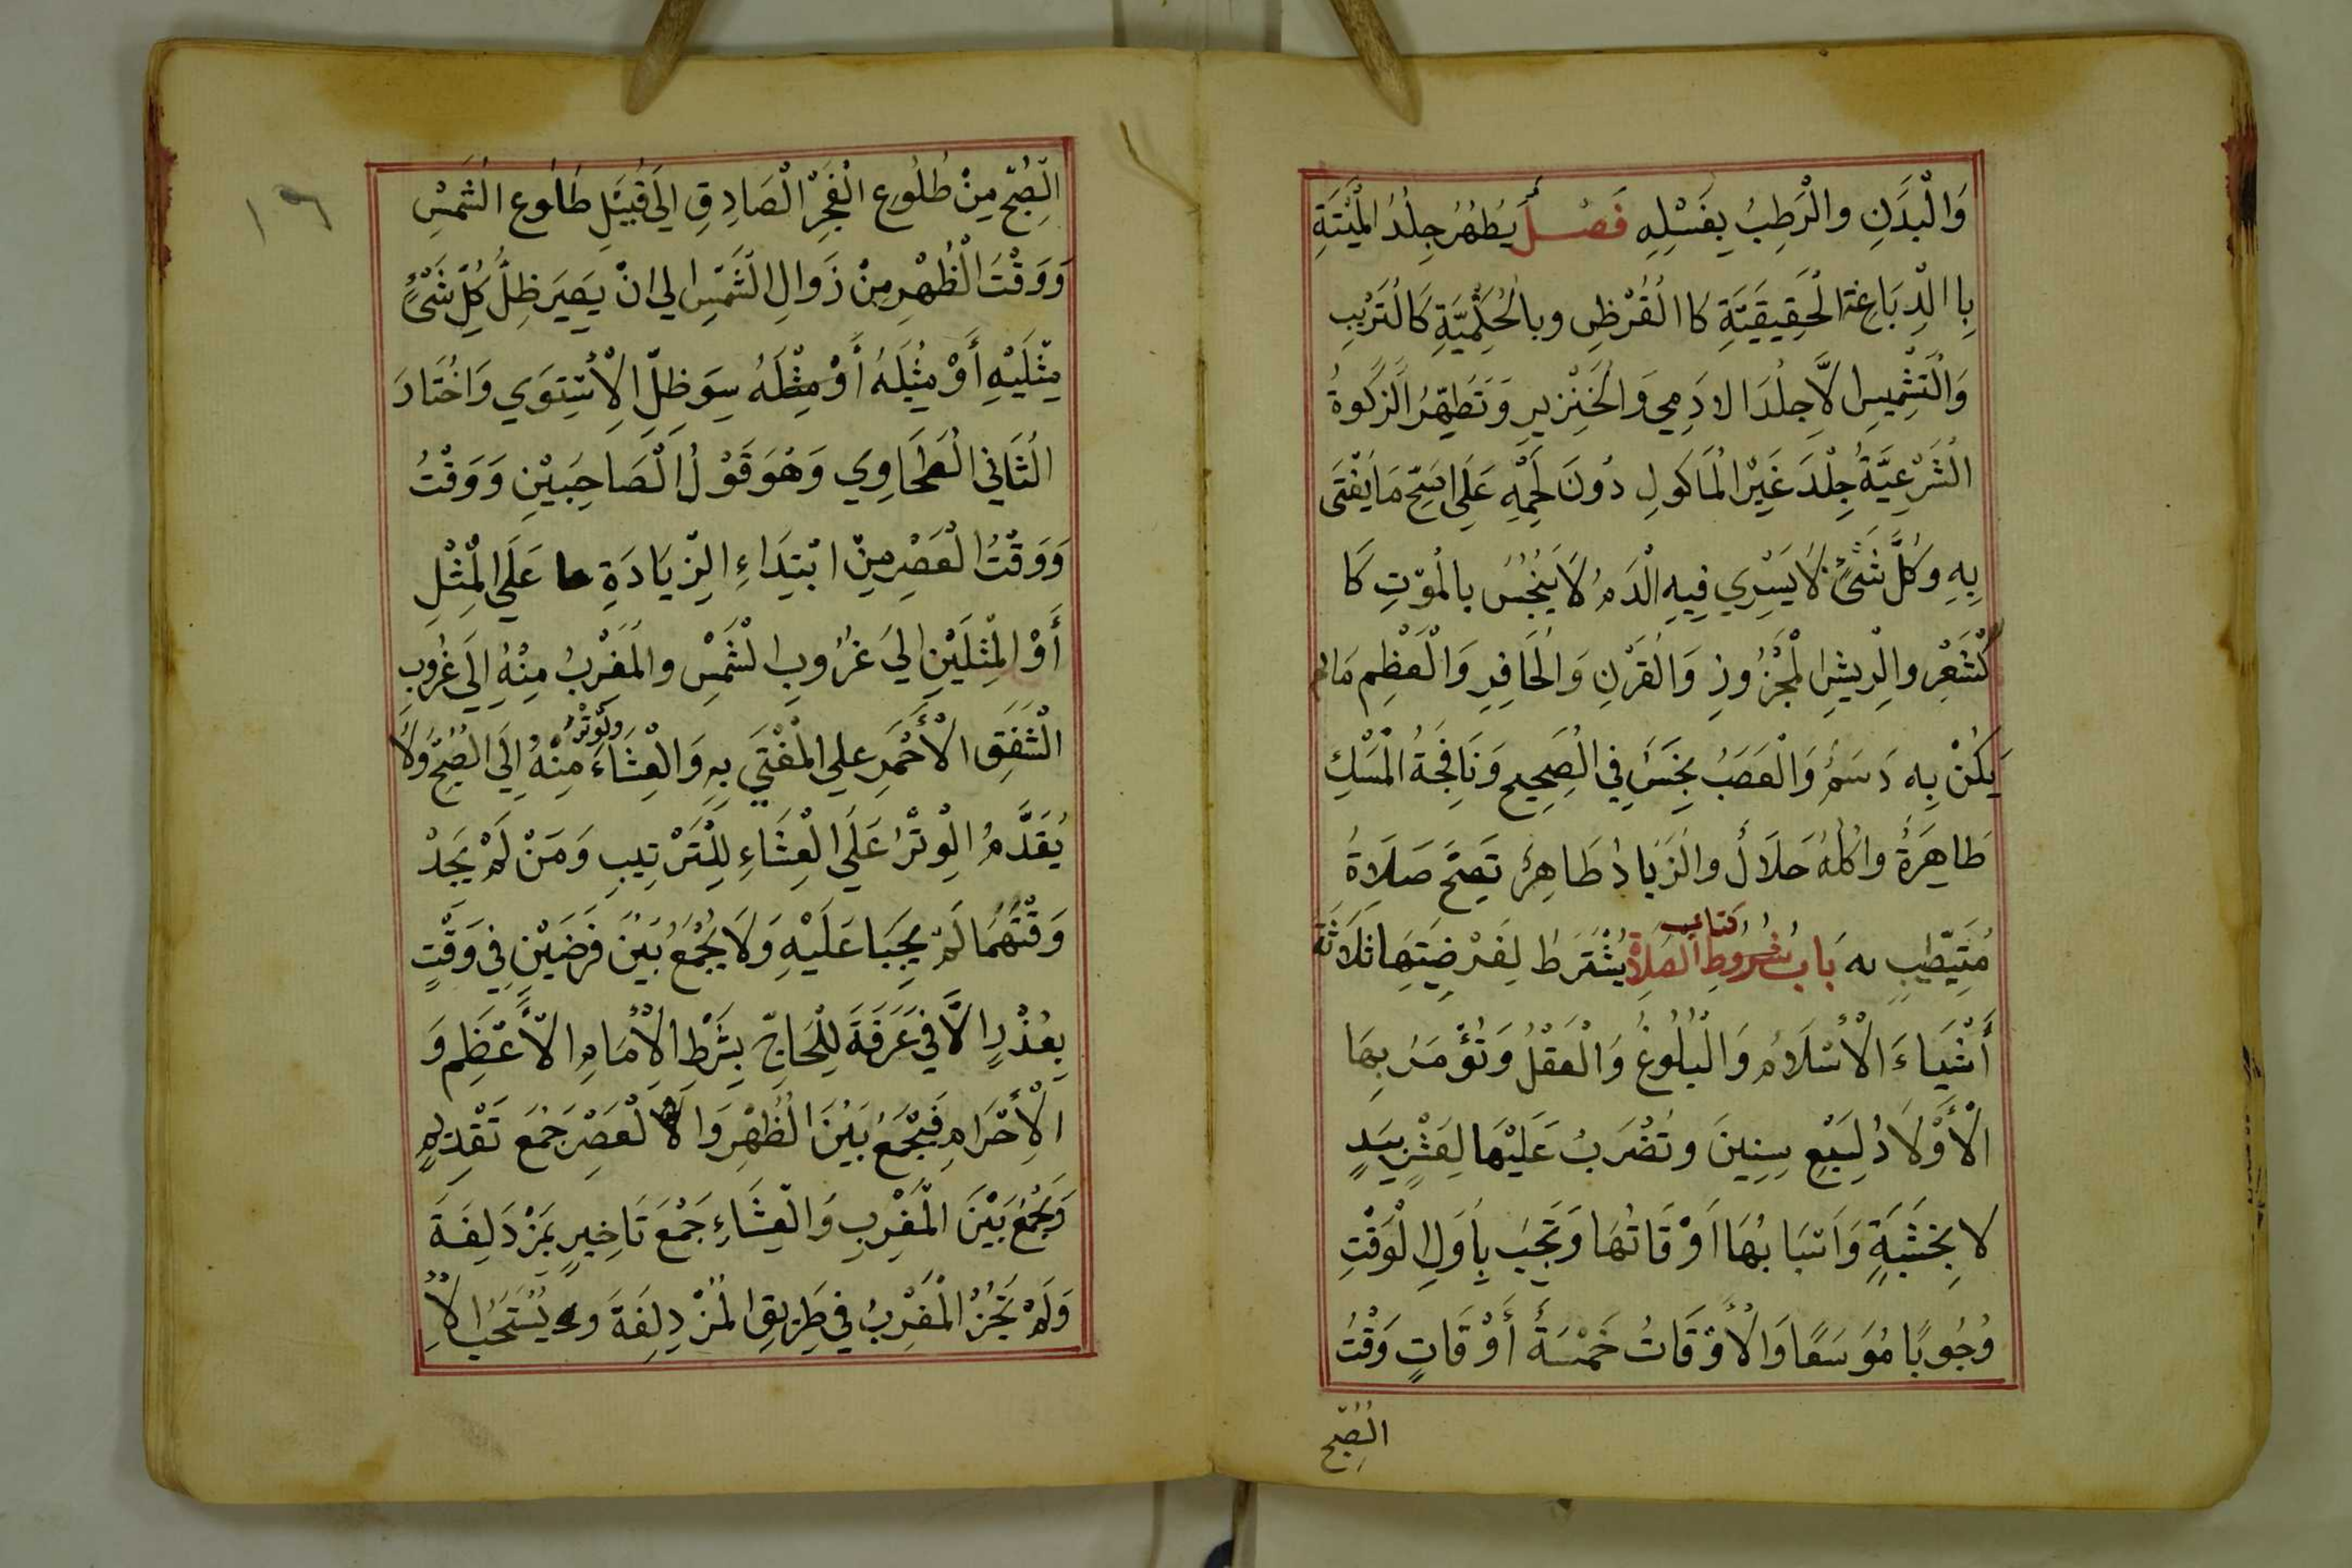 وَالْبَدَنِ والْرَطِبُ بِغَسْلِهِ فَصْلٌ يُطَهَّرُ جِلْدُ الْمَيْتَةِ
بِا الدِّبَاغِةِ الْحَقِيقِيَّةِ كَا الْقُرْظِ وبالْحُكْمِيَّةِ كَالتَّرْبِ
وَالْتَشْمِيسِ لَّا جِلْدَ الادَمِي وَالْخَنْزِيرِ وَتَطَهِّرُ الَزَّكَوةُ
الْشَرْعِيَّةُ جِلْدَ غَيْرِ الْمَاكَولِ دُونَ لَحْمِهِ عَلَى اصَحِّ مَا يُفْتَى
بِهِ وَكُلُّ شَىْءٍ لَا يَسْرِي فِيهِ الْدَمُ لَا يَنْجُسُ بالْمَوْتِ كَا
كْشَعْرِ والرِيشِ الْمَجْزُوزِ وَالْقَرْنِ وَالْحَافِرِ وَالْعَظْمِ مَالم
يَكُنْ بِهِ دَسَمٌ وَالْعَصَبُ نِجَسٌ فِي الْصَحِيحِ وَنَافِجَةُ الْمَسْكِ
طَاهِرَةٌ وَاكْلُهُ حَلَالٌ والْزَبَادُ طَاهِرٌ تَصِحَّ صَلَاةُ
مُتَيِّطِبِ به بَابُ شُرُوطِ الْصَلَاةِ يُشْتَرَطُ لِفَرْضِيَتِهَا ثَلَاثَةَ
كتاب
أَشْيَاءَ الْأسْلَامُ وَالْبُلُوغُ وَالْعَقْلُ وَتُؤْمَرُ بِهَا
الْأَوْلَادُ لِسَبْعِ سِنِينَ وتُضْرَبُ عَلَيْهَا لِعَشْرٍ بِيَدٍ
لا بِخَشَبَةٍ وَاَسْبَابُهَا اَوْقَاتُهَا وَتَجِبُ بِأَوَلِ الْوَقْتِ
وُجُوبًا مُوَسَعًا وَالْأوْقَاتُ خَمْسَةُ أَوْقَاتٍ وَقْتُ
الْصُبِّحِ
١٦
الصُبّحِ مِنْ طُلُوع الْفَجْرِ الْصَادِقِ الَى قُبَيْلِ طُلُوع الْشَمْسِ
وَوَقْتَ الْظُهْرِ مِنْ زَوَالِ الْشَمْسِ الي انْ يَصِيرَ ظِلُّ كُلِّ شَىْءٍ
مِثْلَيْهِ أَوْ مِثْلَهُ أَوْ مِثْلَهُ سِوَ ظِلِّ الْأسْتِوَي وَاخْتَارَ
الْثَانِي الْطَحَاوِي وَهُوَ قَوْلُ الْصَاحِبَيْنِ وَوَقْتُ
وَوَقْتُ الْعَصْرِ مِنْ ابْتِدَاءِ الزِيَادَةِ عَلَى الْمِثْلِ
أَوْ الْمِثْلَيْنِ الَي غرُوبِ الْشَمْسِ والْمَغْرِبُ مِنْهُ الَي غُرُوبِ
الْشَفَقِ الْأَحْمَرِ علي الْمُفْتَي بِهِ وَالْعِشَاءَ وَالْوَتْرُ مِنْهُ اِلَى الْصُبْحِ وَلَا
يُقَدَّمُ الْوِتْرُ عَلَى الْعِشَاءِ لِلْتَرْتِيبِ وَمَنْ لَمْ يَجَدْ
وَقْتَهُمَا لَمْ يَجِبَا عَلَيْهِ وَلَا يُجْمَعُ بَيْنَ فَرَضَيْنِ فِي وَقْتٍ
بِعُذْرٍ الَّا فِي عَرَفَةَ لِلْحَاجِّ بِشَرْطِ الْأمَامِ الْأَعْظَمِ وَ
الْأحْرَامِ فَيَجْمَعُ بَيْنَ الْظُهْرِ وَا لْعَصْرِ جَمْعَ تَقْدِيمٍ
وَيَجْمَعُ بَيْنَ الْمَغْرِبِ وَالْعِشَاءِ جَمْعَ تَاخِيرٍ بِمَزْدَلِفَةَ
وَلَمْ تَجُزْ الْمَغْرِبُ فِي طَرِيقِ الْمُزْدِلِفَةَ وَيُسْتَحَبُ الْأ